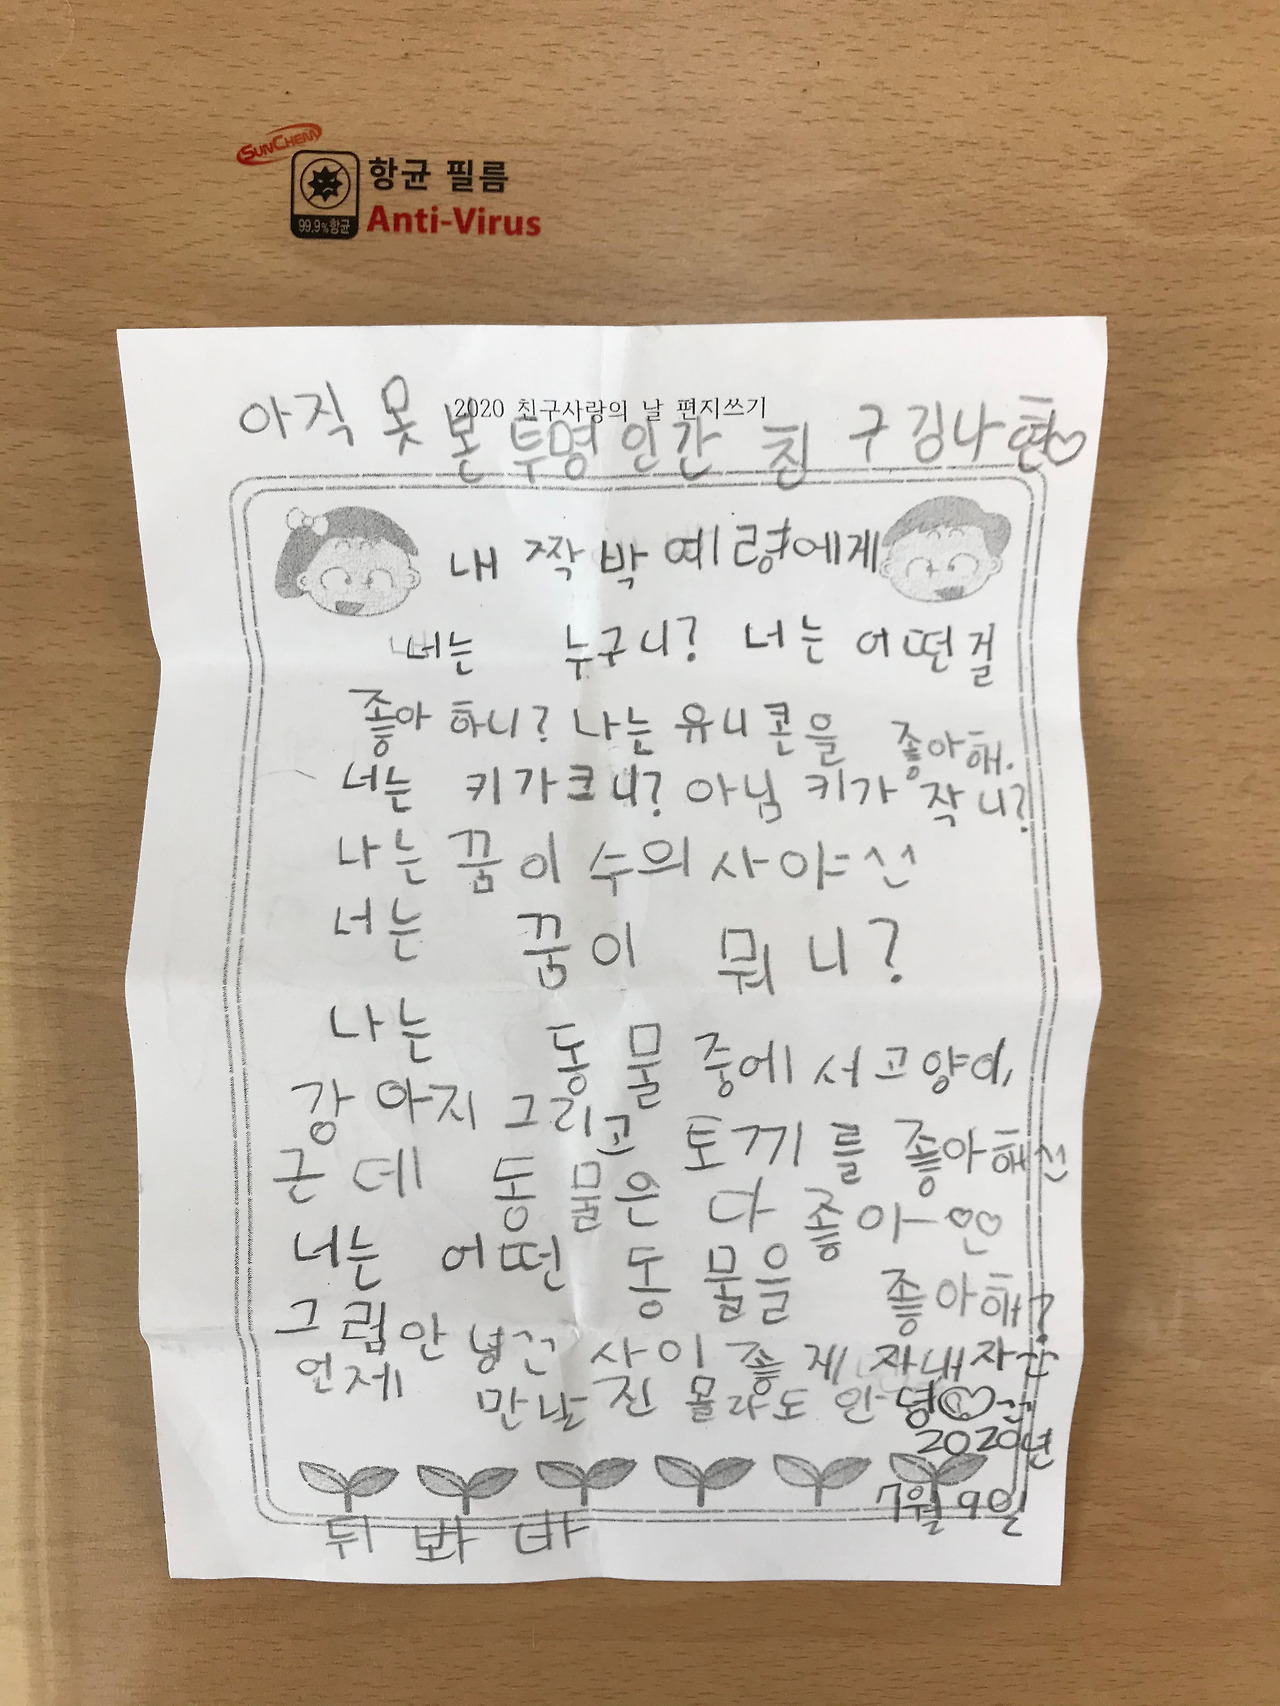 SUNCHEM
항균 필름
99.9%항균
Anti-Virus
2020 친구사랑의 날 편지쓰기
아직 못 본 투명 인간 친구 김나현♡
내 짝 박예령에게
너는 누구니? 너는 어떤걸
좋아 하니? 나는 유니콘을 좋아해.
너는 키가크니? 아님 키가 작니?
나는 꿈이 수의사야
너는 꿈이 뭐니?
나는 동물 중에서 고양이,
강아지 그리고 토끼를 좋아해
근데 동물은 다 좋아
너는 어떤 동물을 좋아해?
그럼 안녕 사이 좋게 자내자
언제 만날진 몰라도 안녕
2020년
7월 9일
뒤 봐바